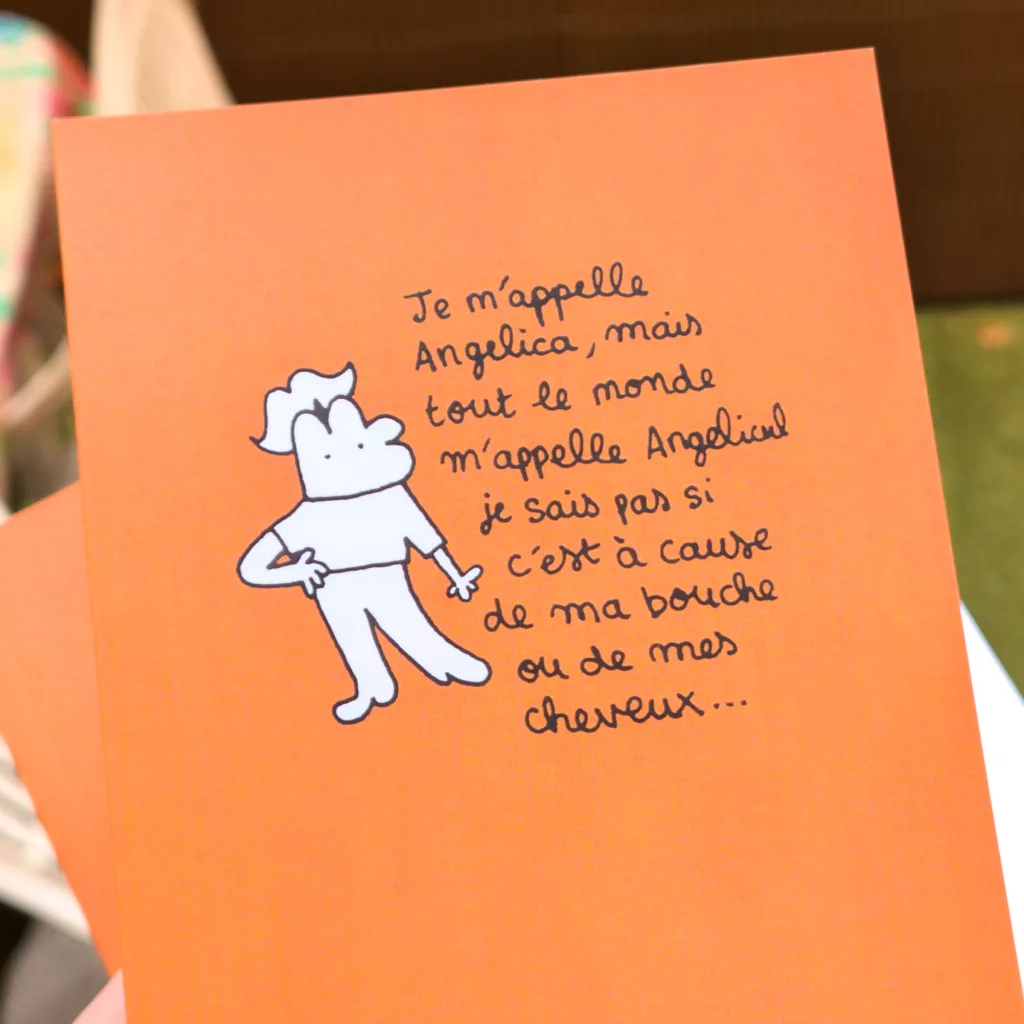 Je m'appelle
Angelica, mais
tout le monde
m'appelle Angelicul
je sais pas si
c'est à cause
de ma bouche
ou de mes
cheveux...